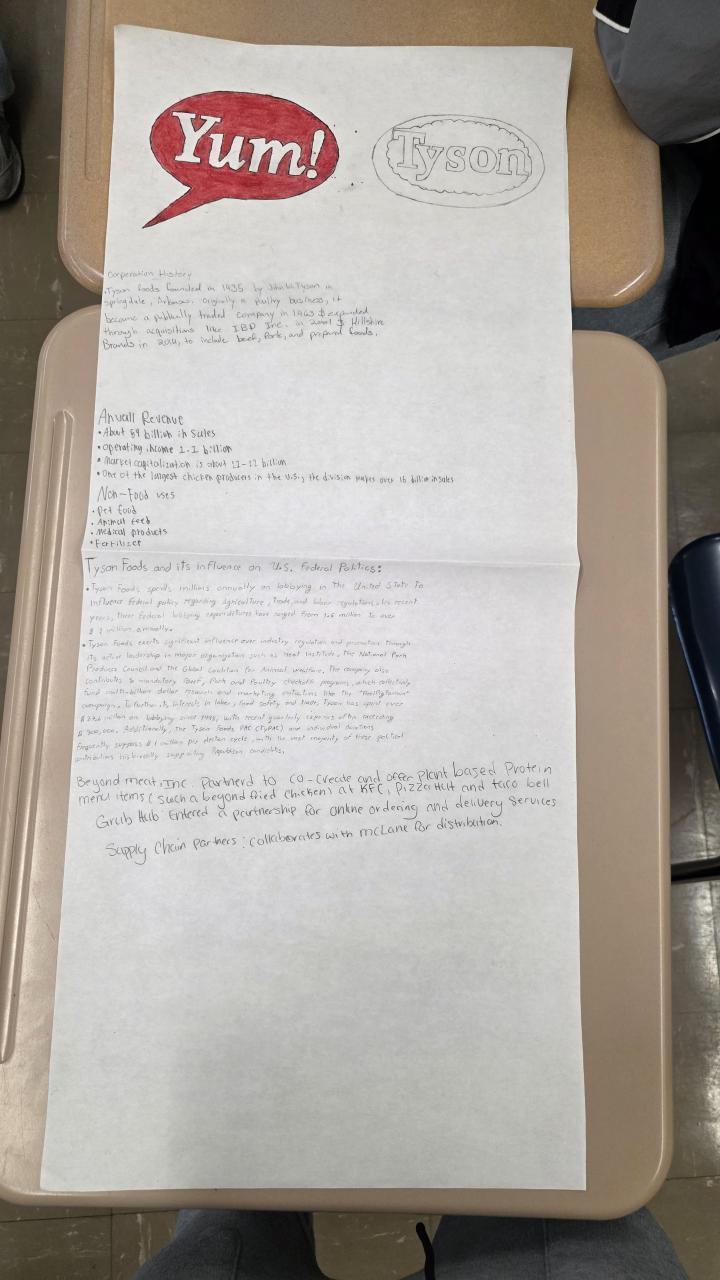 Yum!
Tyson
Corperation History
•Tyson foods founded in 1935 by John W. Tyson in
springdale, Arkansas. originally a poultry business, it
became a publically traded company in 1963 & expanded
through acquisitions like IBP Inc. in 2001 & Hillshire
Brands in 2014, to include beef, Pork, and prepared foods.
Anuall Revenue
•About 54 billion in Sales
•operating income 1.1 billion
•Market capitalization is about 21-22 billion
•One of the largest chicken producers in the U.S., the division makes over 16 billion in sales
Non-Food uses
•Pet food
•Animal feed
•Medical products
•Fertilizer
Tyson Foods and its influence on U.S. Federal Politics:
•Tyson Foods spends millions annually on lobbying in the United State To
Influence federal policy regarding agriculture, trade, and labor regulations. In recent
years, their federal lobbying expenditures have ranged from 1.6 million to over
$ 2 million annually.
•Tyson Foods exerts significant influence over industry regulation and promotion through
its active leadership in major organization such as Meat Institute, The National Pork
Producers Council and the Global Coalition for Animal welfare. The company also
contributes to mandatory Beef, Pork and Poultry checkoff programs, which collectively
fund multi-billion dollar research and marketing initiatives like the
campaign. To further its interests in labor, food safety and trade, Tyson has spent over
million on lobbying since 1998, with recent quarterly expenses often exceeding
$ 500,000. Additionally, the Tyson Foods PAC (TyPAC) and individual donations
frequently surpass $1 million per election cycle, with the vast majority of these political
contributions historically supporting Republican candidates.
Beyond meat, Inc. Partnerd to co-create and offer plant based Protein
menu items (such a beyond fried chicken) at KFC, Pizza Hut and taco bell
Grub Hub Entered a partnership for online ordering and delivery services
Supply Chain partners: collaborates with mcLane for distribution.